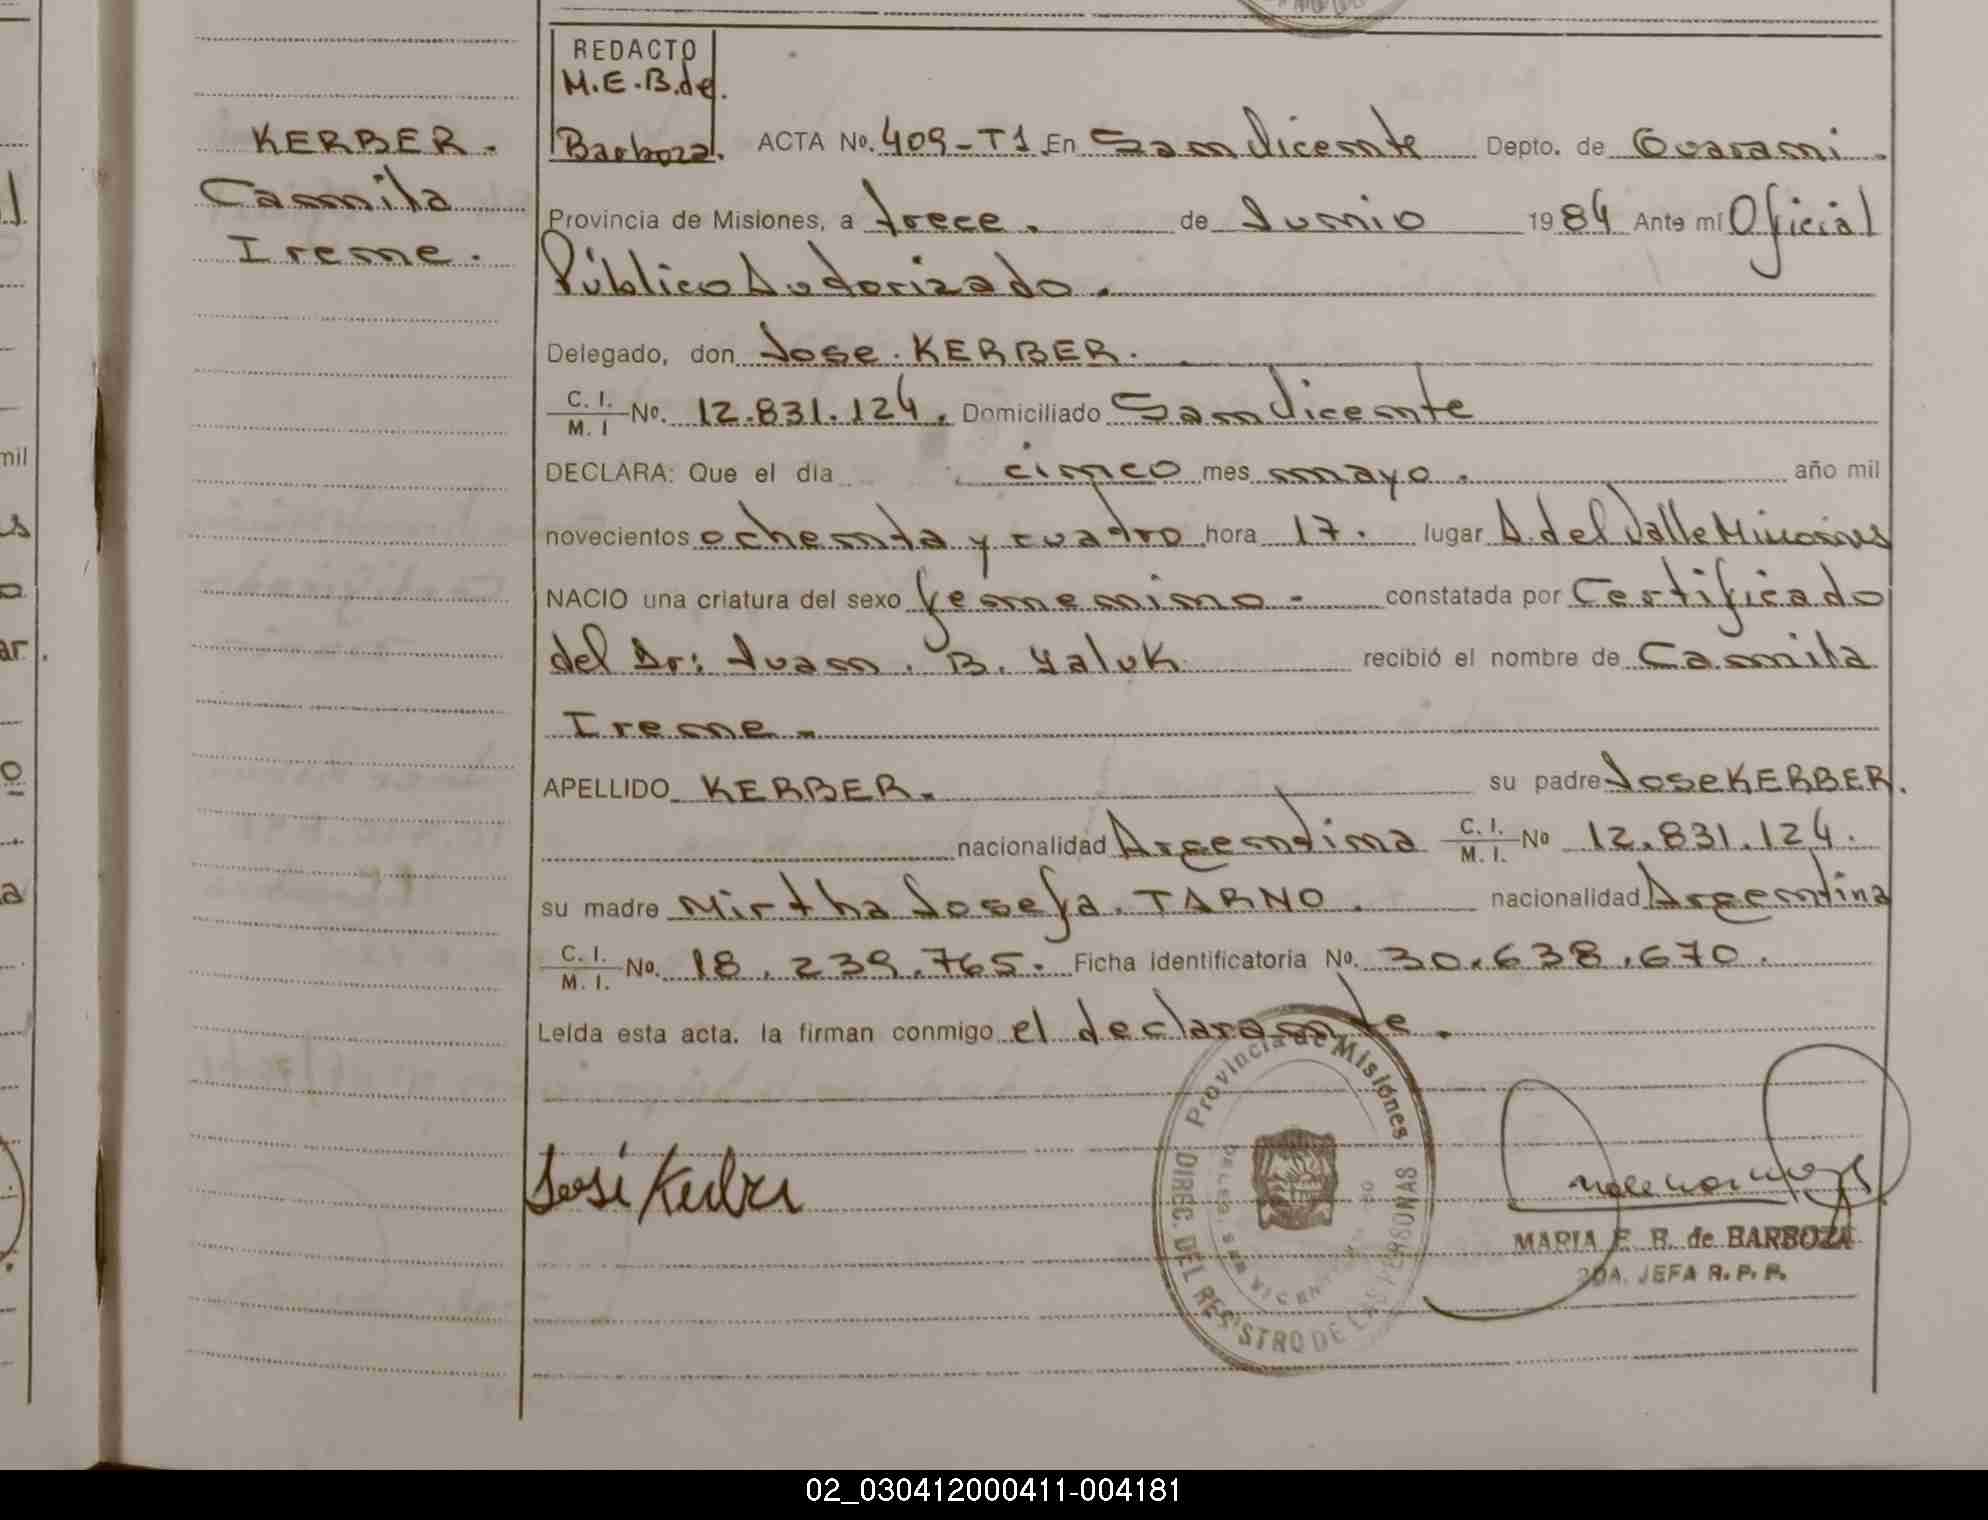 REDACTO
M.E.B.de.
KERBER.
Barboza. ACTA No. 409-T1 En San Vicente Depto. de Guarani.
Camila
Provincia de Misiones, a trece. de Junio 1984 Ante mí Oficial
Irene.
Público Autorizado.
Delegado, don Jose. KERBER.
C. I.
M. I No. 12.831.124. Domiciliado San Vicente
DECLARA: Que el día cinco mes mayo. año mil
novecientos ochenta y cuatro hora 17. lugar A. del Valle Misiones
NACIO una criatura del sexo femenino - constatada por Certificado
del Dr: Juan. B. Yaluk recibió el nombre de Camila
Irene.-
APELLIDO KERBER. su padre Jose KERBER.
nacionalidad Argentina C. I. M. I. No 12.831.124.
su madre Mirtha Josefa. TARNO. nacionalidad Argentina
C. I.
M. I. No. 18.239.765. Ficha identificatoria No. 30.638.670.
Leída esta acta. la firman conmigo el declarante.
Provincia de Misiónes
DIREC. DEL REGISTRO DE LAS PERSONAS
José Kerber
MARIA E. B. de BARBOZA
2DA. JEFA R. P. P.
mil
ar.
02_030412000411-004181